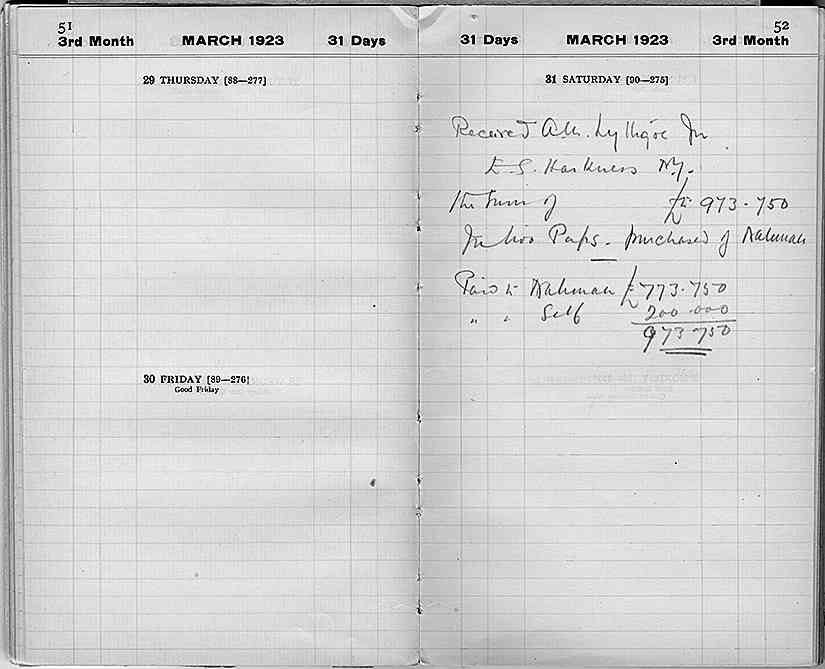 51
3rd Month MARCH 1923 31 Days
29 THURSDAY [88—277]
30 FRIDAY [89—276]
Good Friday
52
31 Days MARCH 1923 3rd Month
31 SATURDAY [90—275]
Received A.M. Lythgoe for
E.S. Harkness N.Y.
the sum of £E 973.750
for two Paps. purchased of Nahman
Paid to Nahman £E 773.750
" " Self 200.000
973 750